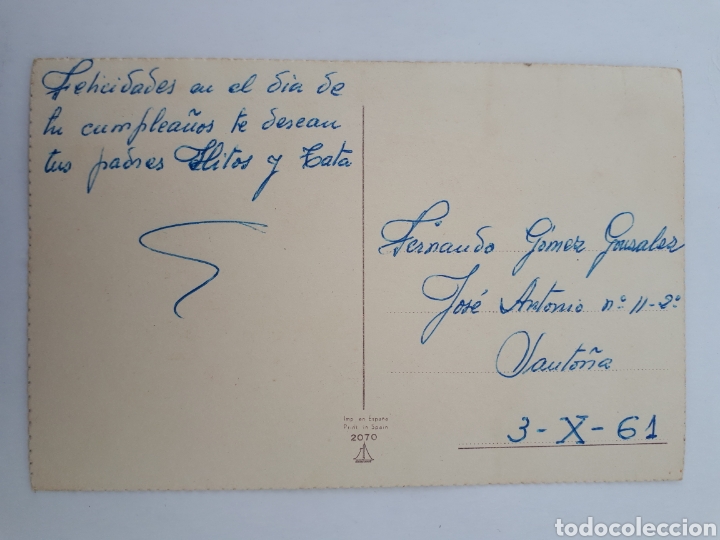 Felicidades en el dia de
tu cumpleaños te desean
tus padres Hitos y Tata
Fernando Gómez Gonzalez
José Antonio nº 11-2º
Santoña
3-X-61
Imp. en España
Print. in Spain
2070
todocoleccion